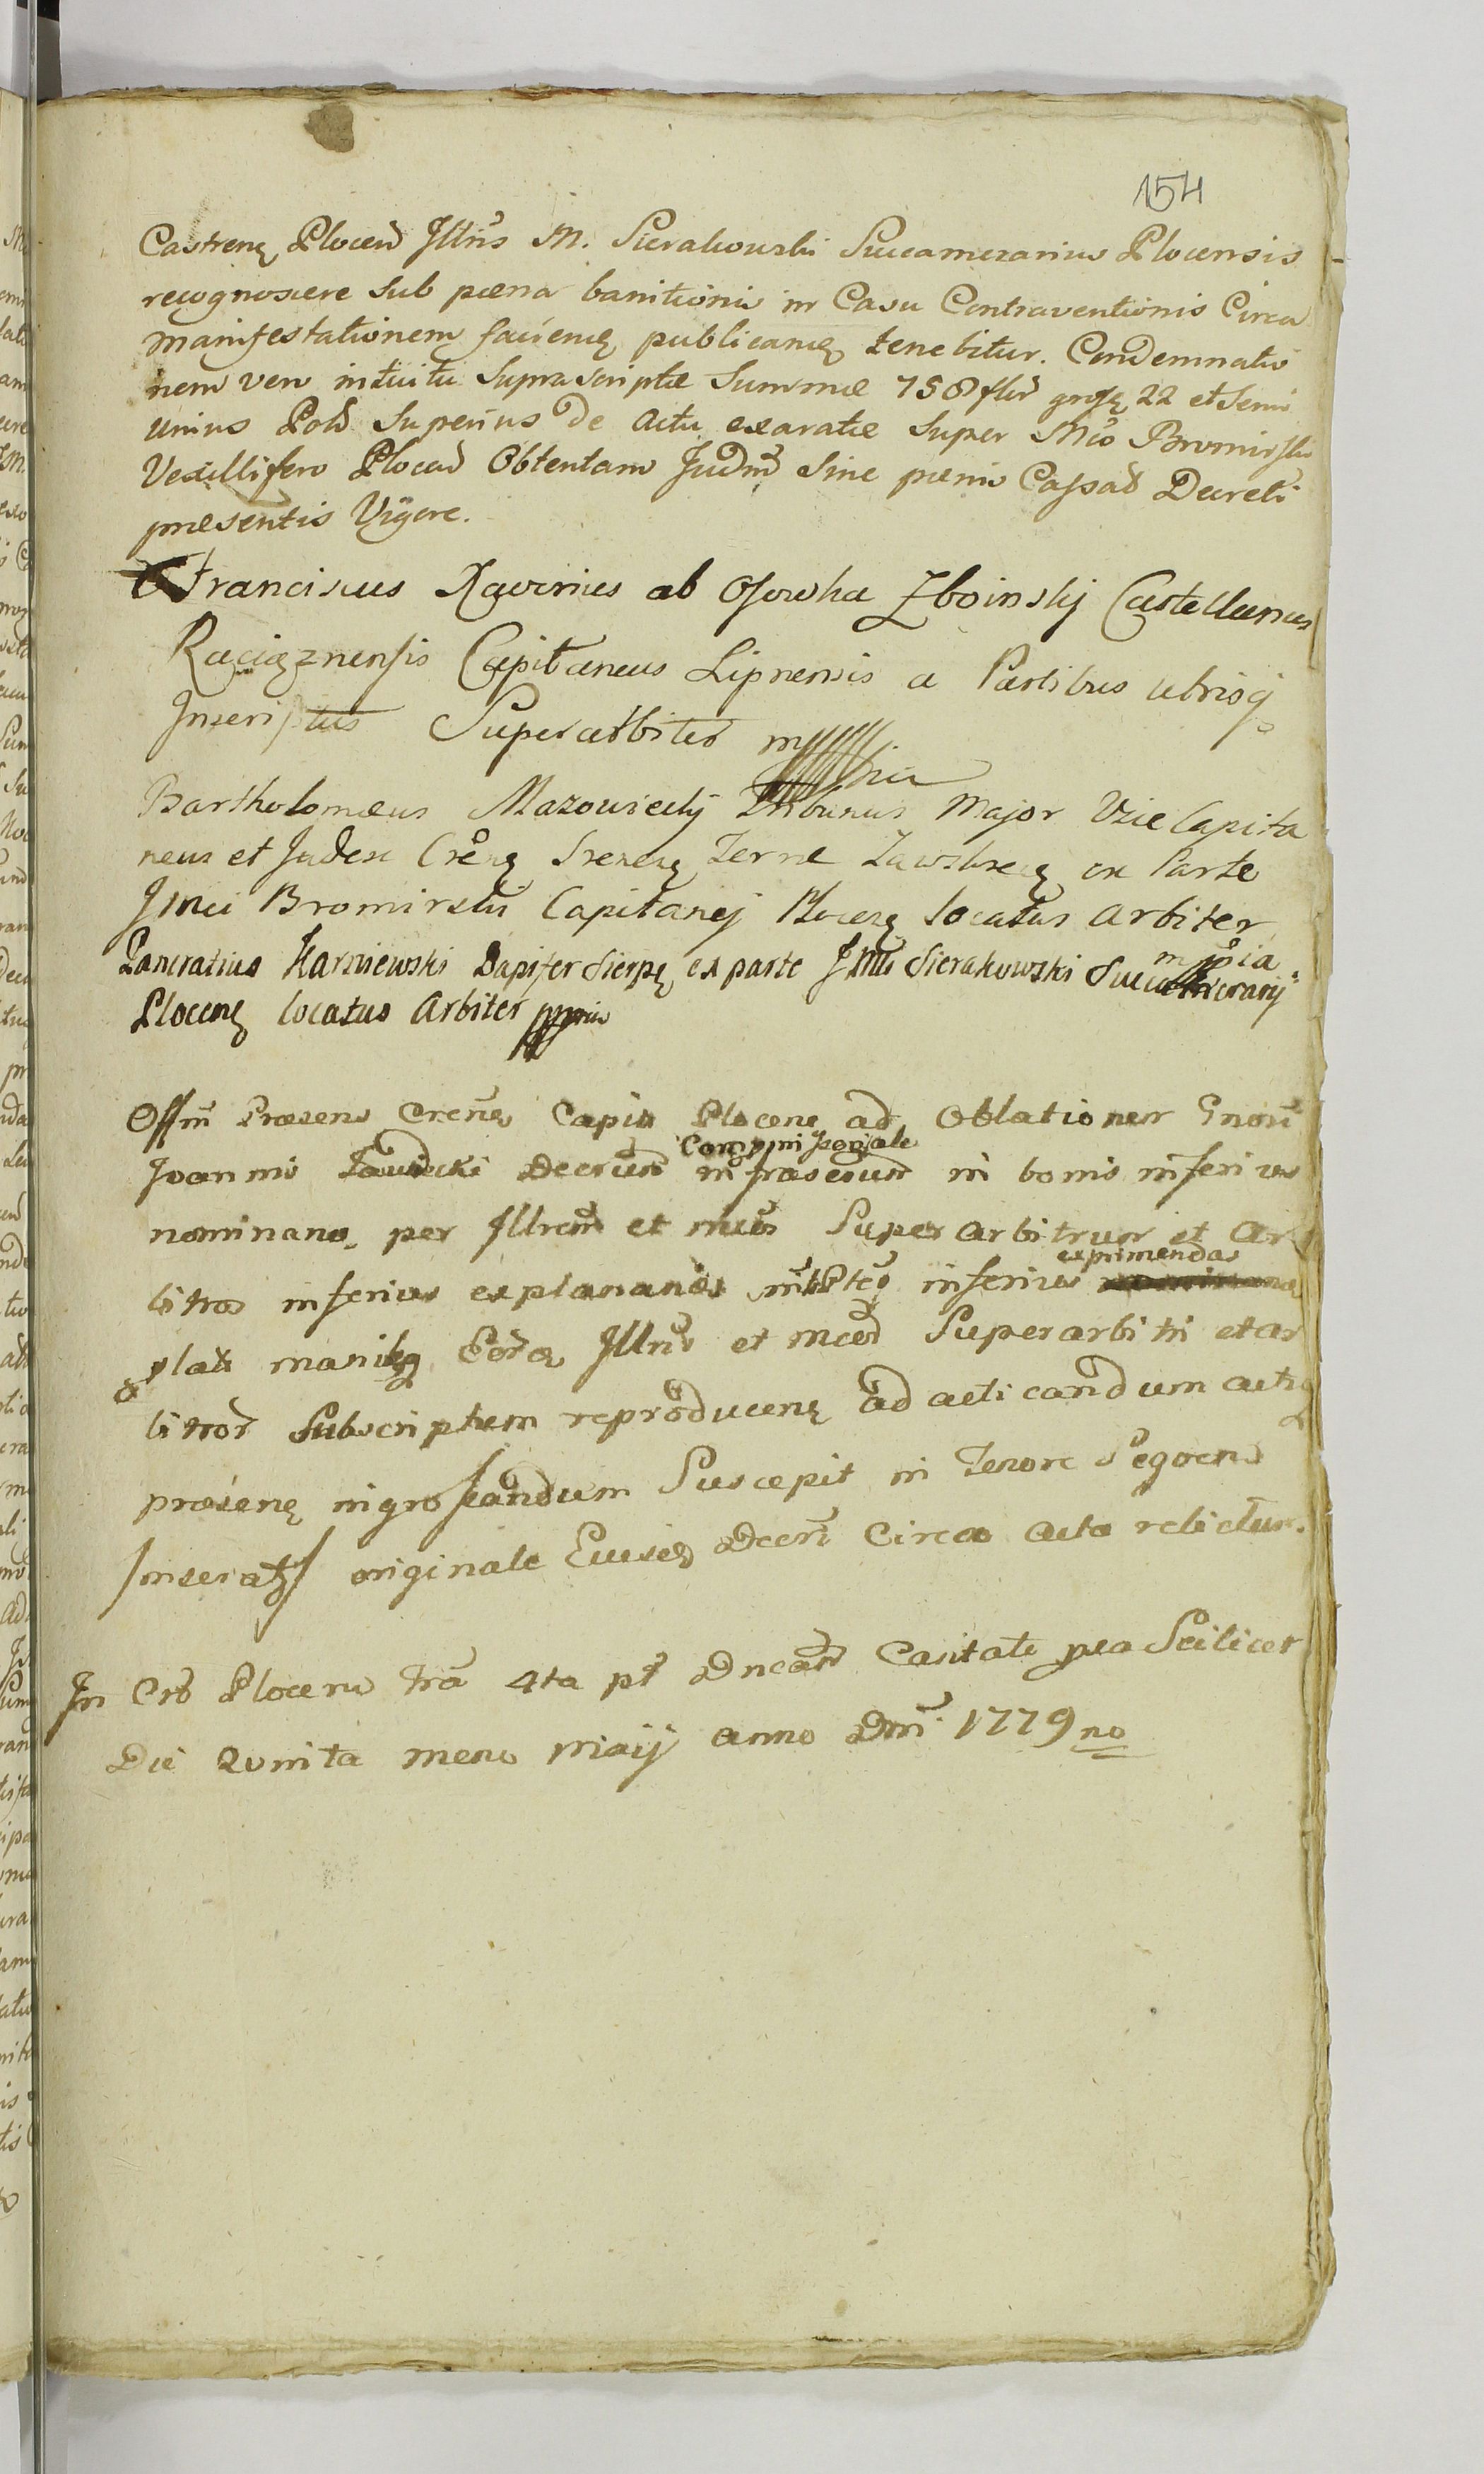 154
Castrenę Plocen Jllris M. Sierakowski Succamerarius Plocensis
recognoscere sub pæna banitionis in Casu Contraventionis Circa
manifestationem facienę publicanę tenebitur. Condemnatio
nem vero intuitu suprascriptæ summæ 758 flõr grosę 22 et semi
unius Pold superius de actu exaratæ super Mco Bromirski
Vexillifero Plocen Obtentam Judm sine pænis Cassad Decreti
præsentis Vigore.
Franciscus Xaverius ab Osowka Zboinskj Castellanus
Raciąznensis Capitaneus Lipnensis a Partibus utrisq
Inscriptus Superarbiter mppria
Bartholomæus Mazowieckj Tribunus Major Vice Capita
neus et Judex Crens Srenens Terræ Zawskrzeń ex Parte
Jmci Bromirski Capitanej Plocenę locatus arbiter
mppia
Pancratius Karniewski Dapifer Sierpę ex parte JMci Sierakowski Succamerarij
Plocenę locatus Arbiter mppria
Offm Præsens Crenę Capis Plocenę ad Oblationem Gnosi
Compromissoriale
Joannis Decrum infrascrum in bonis inferius
nominanę per Illrem et mcos Super arbitrum et Ar
exprimendas
bitros inferius explananos inferius
latu manibq Eorq Illris et mcor Superarbitri et ar
bitror Subscriptum reproducenę ad acticandum actisq
præsenę ingrossandum Suscepit in Tenore Seqven
/inseratz/ originale Eiusd Decri Circa acta relictum.
In Crō Plocen Fra 4ta pt Dncam Casitate pea Scilicet
Die Quinta mens Maij anno Dni 1779no